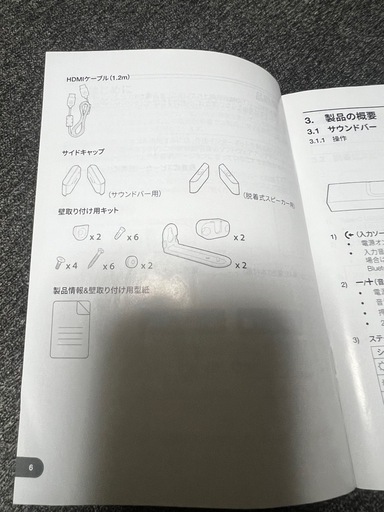 HDMIケーブル（1.2m）
サイドキャップ
（サウンドバー用）
（脱着式スピーカー用）
壁取り付け用キット
x 2
x 6
x 2
x 4
x 6
x 2
x 2
製品情報&壁取り付け用型紙
6
3. 製品の概要
3.1 サウンドバー
3.1.1 操作
1)
（入力ソー
• 電源オ
• 入力音
場合に
Blue
2) −/+（音
• 電
• 音
• 押
• 2
3) ステ
シ